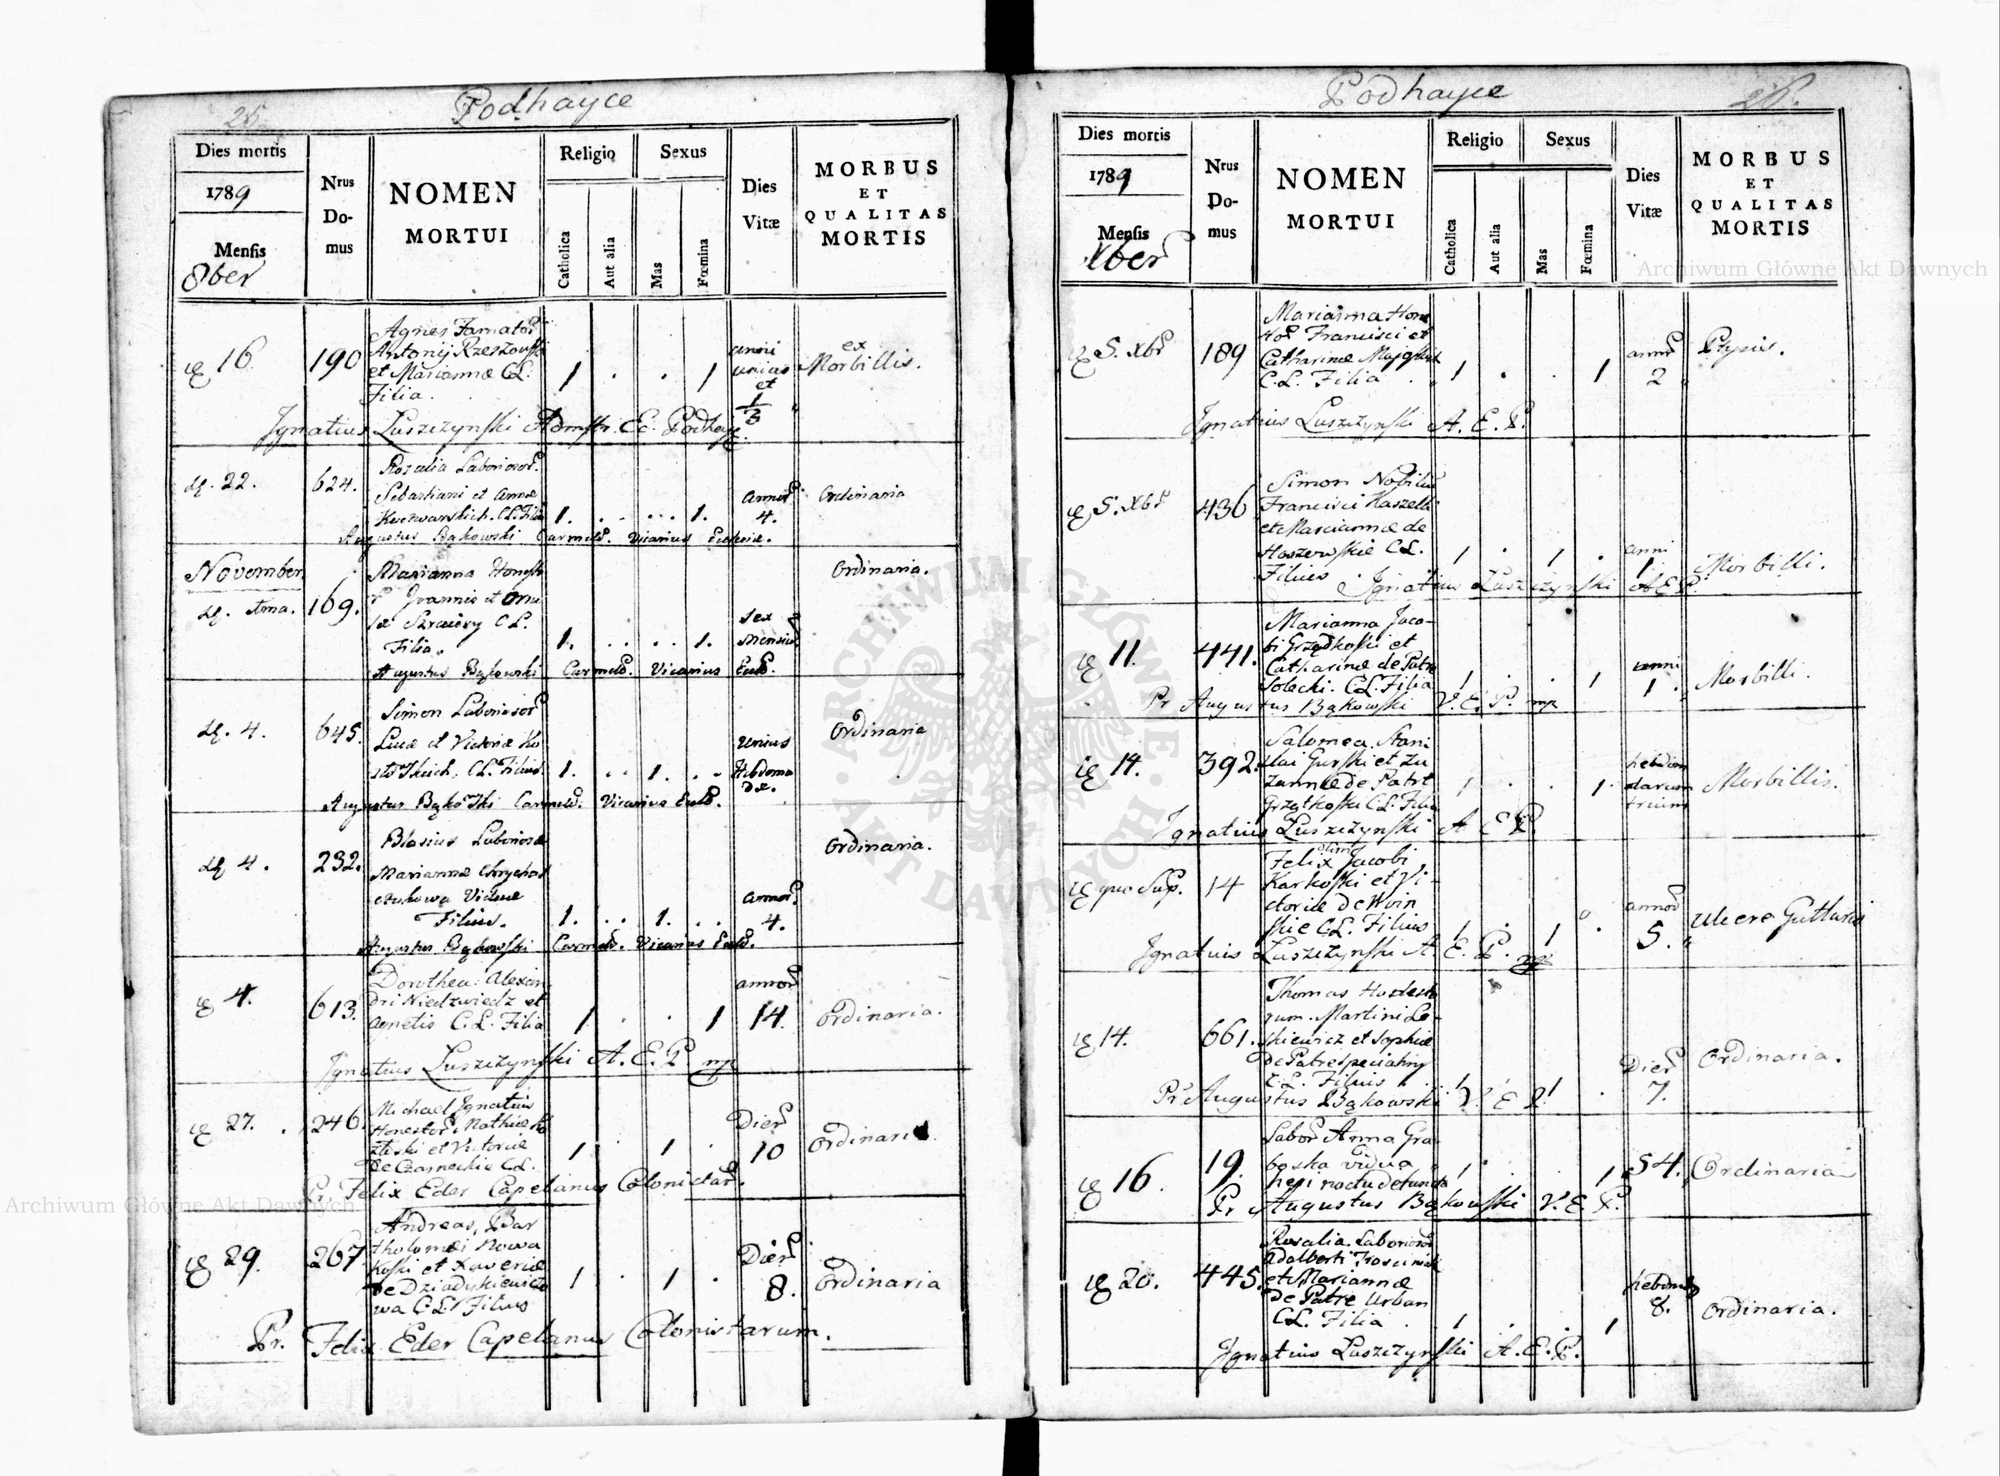 25
Podhayce
Dies mortis
1789
Mensis
8ber
Nrus
Do-
mus
NOMEN
MORTUI
Religio
Catholica
Aut alia
Sexus
Mas
Fœmina
Dies
Vitæ
MORBUS
ET
QUALITAS
MORTIS
16.
190
Agnes
Antonij
et Mariannæ C.L.
Filia.
1 . . 1
unius
et
1/3
ex
Morbillis.
Ignatius Luszczynski
22.
624.
Rosalia Laborios.
Sebastiani et Annæ
C.L. Filia
1. . . . . 1.
4.
Ordinaria
Augustus Bąkowski Carmel. Vicarius
November
169.
Marianna Honest
Joannis et
C.L.
Filia.
1. . . . . 1.
sex
Ordinaria.
Augustus Bąkowski Carmel. Vicarius Eccl.
4.
645.
Simon Laborios
Lucæ et Victoriæ
C.L. Filius
1. . . 1. . .
unius
Hebdoma
dæ.
Ordinaria
Carmel. Vicarius Eccl.
4.
232.
Blasius
Mariannæ
Viduæ
Filius.
1. . . 1. . .
annor.
4.
Ordinaria.
Augustus Bąkowski Carmel. Vicarius Eccl.
4.
613.
Dorothea Alexan
dri Niedzwiedz et
Agnetis C.L. Filia
1 . . 1
annor
14.
Ordinaria.
Ignatius Luszczynski A.E.P. mp
27.
246.
Michael Ignatius
Honestor Mathiæ
et Victoriæ
de Czarneckie C.L.
1 . 1 .
Dier
10
Ordinaria
Pr. Felix Eder Capelanus Colonistar.
29.
267.
Andreas, Bar
tholomæi Nowa
koski et Xaveriæ
de Dziadykiewiczo
wa C.L. Filius
1 . 1 .
Dier
8.
Ordinaria
Pr. Felix Eder Capelanus Colonistarum.
Podhayce
26.
Dies mortis
1789
Mensis
Xber
Nrus
Do-
mus
NOMEN
MORTUI
Religio
Catholica
Aut alia
Sexus
Mas
Fœmina
Dies
Vitæ
MORBUS
ET
QUALITAS
MORTIS
5. Xbr
189
Marianna Hone
Francisci et
Catharinæ
C.L. Filia .
1 . . 1
annor
2
Ignatius Luszczynski A.E.P.
5. Xbr
436
Simon Nobiliu
Francisci
et Mariannæ de
Hoszowskie C.L.
Filius
1 . 1 .
anni
1.
Morbilli.
Ignatius Luszczynski A.E.P.
11.
441.
Marianna Jaco-
bi Grządkoski et
Catharinæ de Patre
Solecki. C.L. Filia
1 . . 1
anni
1.
Morbilli.
Pr Augustus Bąkowski V.E.P. mp
14.
392.
Salomea Stani
slai Gurski et Zu
zannæ de Patre
C.L. Filia
1 . . 1.
hebdom
darum
trium
Morbillis.
Ignatius Luszczynski A E P.
14
Felix Jacobi
Karkoski et Vi-
ctoriæ de Woin
skie C.L. Filius
1 . 1 .
annor
5.
Ulcere Gutturis
Ignatius Luszczynski A.E.P. mp
14.
661.
Thomas Honesto
rum Martini
et Sophiæ
de Patre
C.L. Filius
1 . 1 .
Dier
7.
Ordinaria.
Pr Augustus Bąkowski V.E.P.
16.
19.
Labor Anna Gra-
boska vidua
heri noctu defuncta
1 . . 1
54.
Ordinaria
Pr Augustus Bąkowski V.E.P.
20.
445.
Rosalia Laborios
Adalberti
et Mariannæ
de Patre Urban
C.L. Filia .
1 . . 1
8.
Ordinaria.
Ignatius Luszczynski A.E.P.
Archiwum Główne Akt Dawnych
Archiwum Główne Akt Dawnych
ARCHIWUM GŁÓWNE AKT DAWNYCH